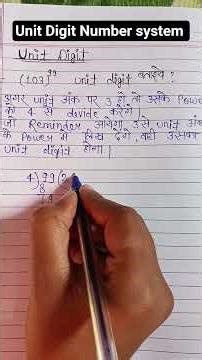 Unit Digit Number system
Unit Digit
- (103)⁹⁹ unit digit बताइये ?
अगर unit अंक पर 3 हो तो उसके Power
को 4 से devide करेंगे |
जो Remindor आयेगा उसे unit अंक
के Power में लिख देंगे, वही उसका
unit digit होगा |
4) 99 (2
8
19